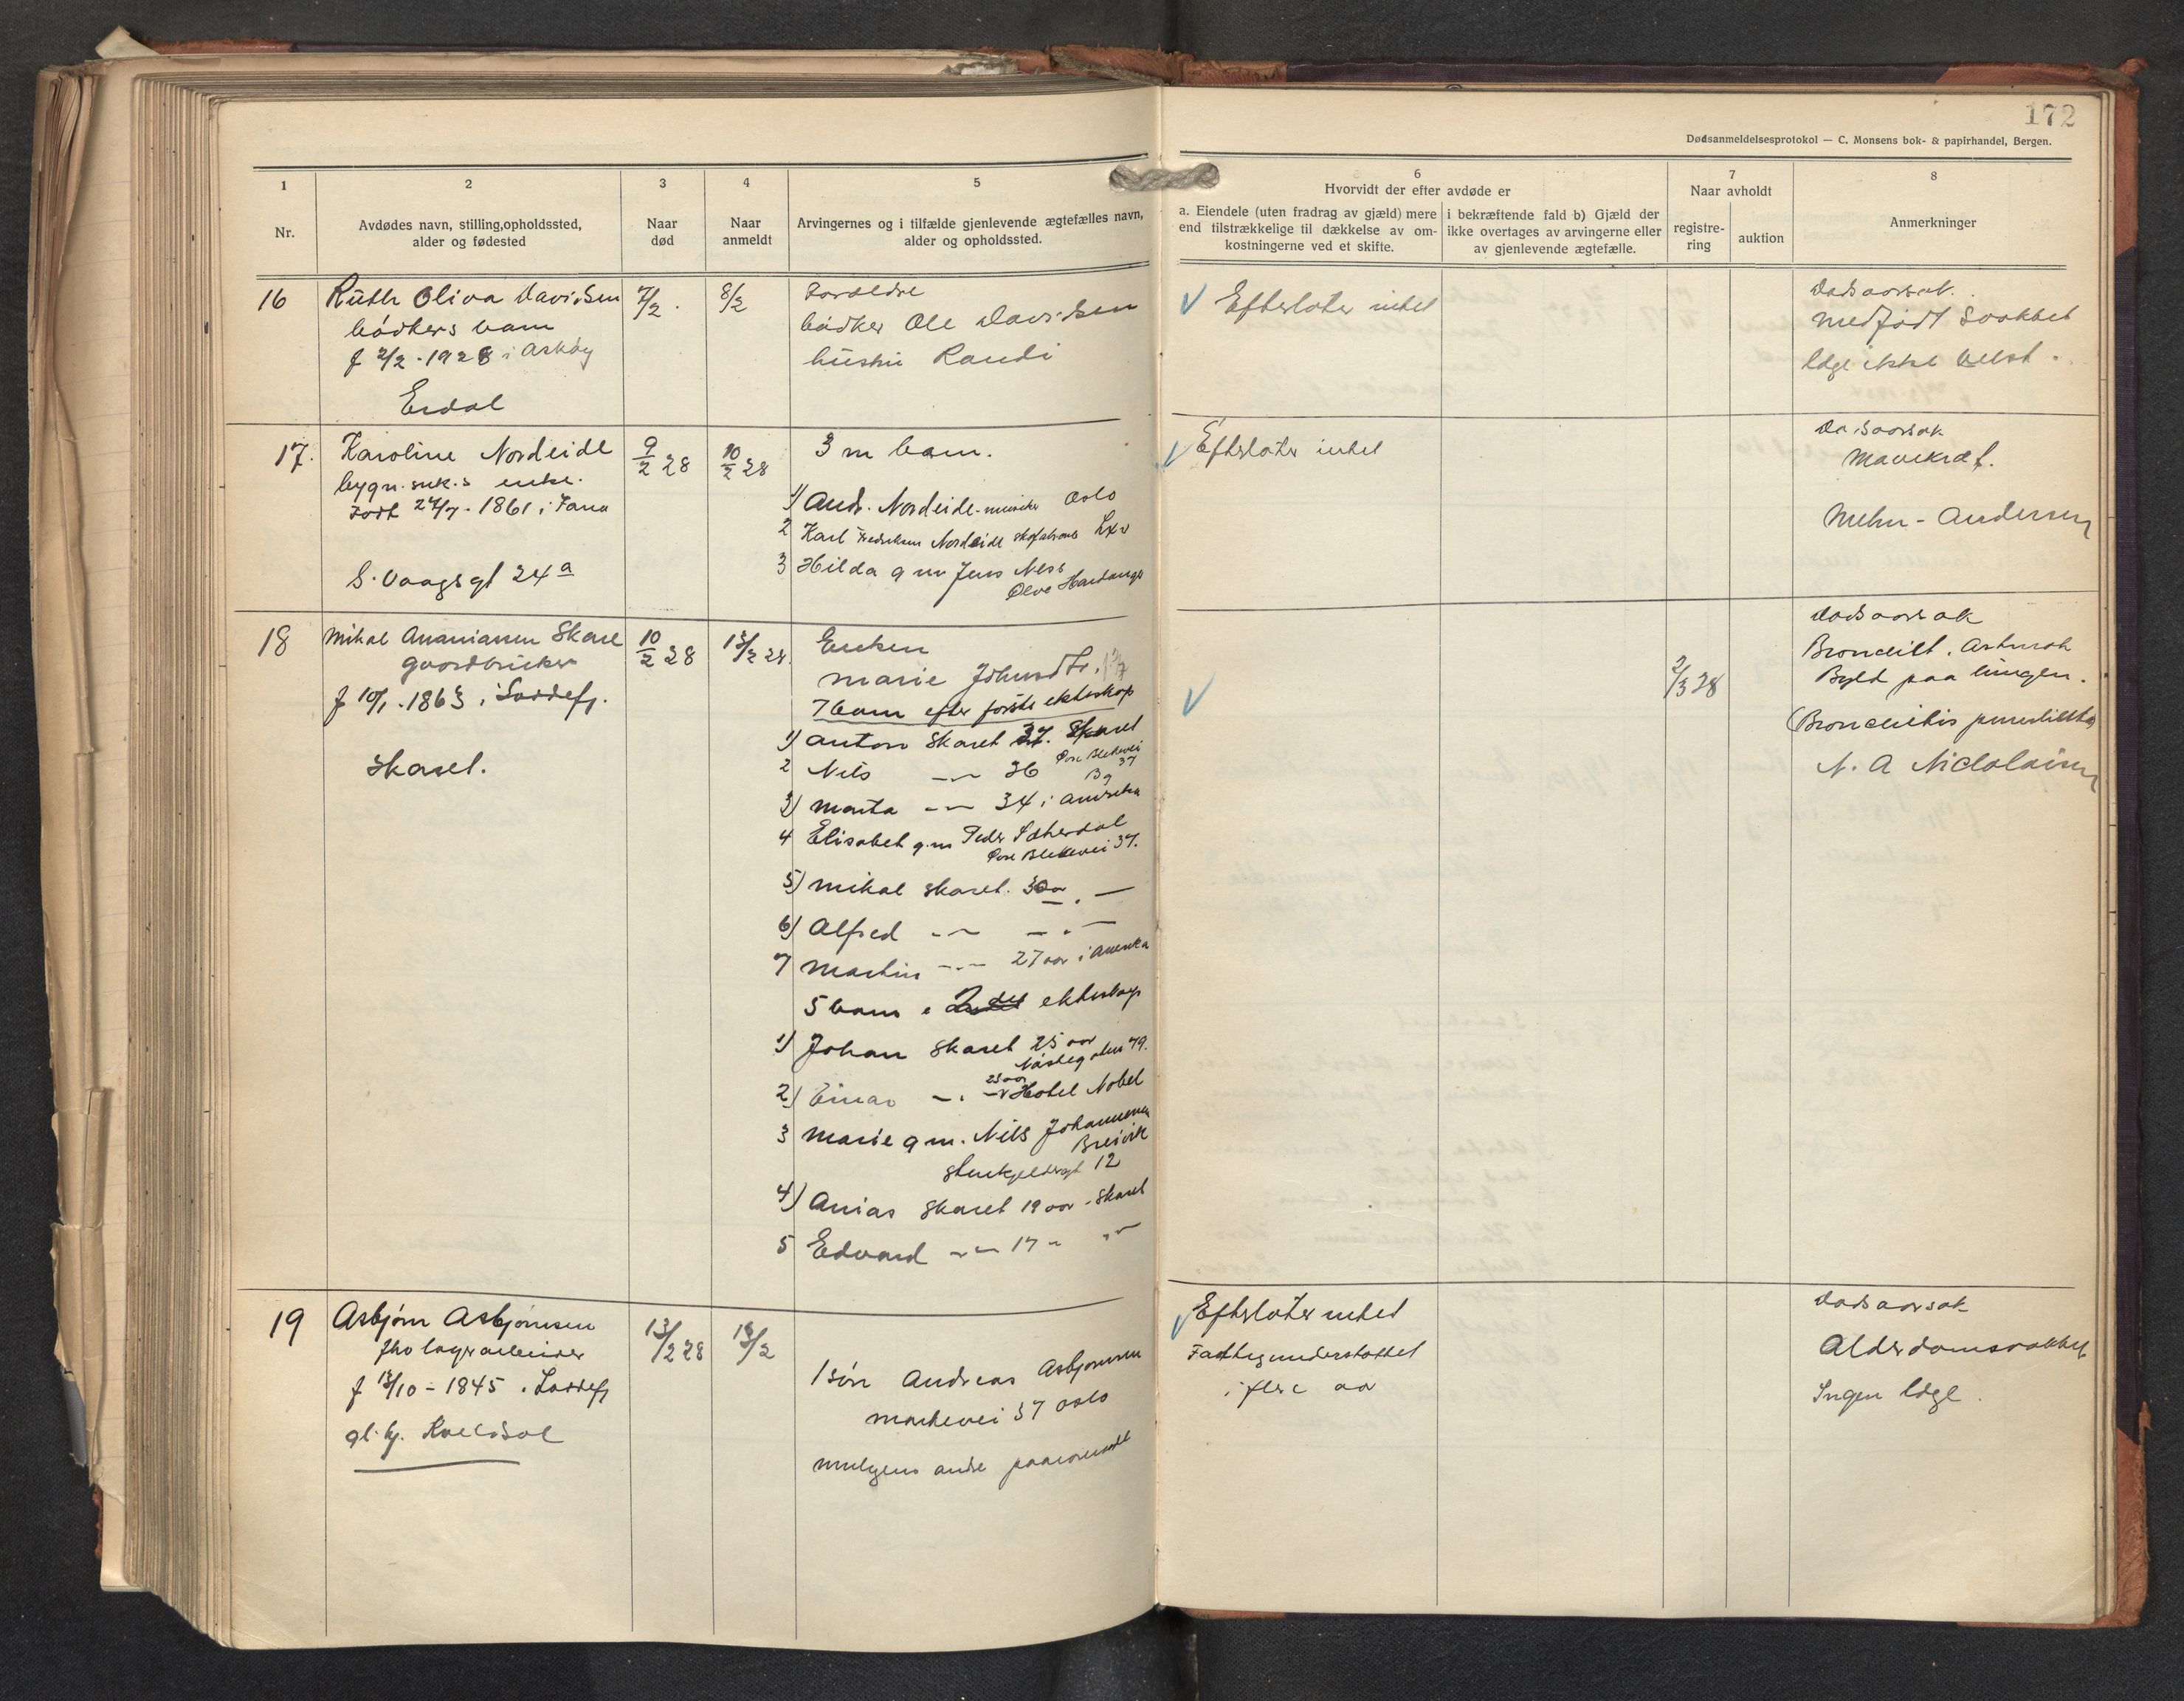 172
Dødsanmeldelsesprotokol — C. Monsens bok- & papirhandel, Bergen.
1
2
3
4
5
6
7
8
Nr.
Avdødes navn, stilling,opholdssted,
alder og fødested
Naar
død
Naar
anmeldt
Arvingernes og i tilfælde gjenlevende ægtefælles navn,
alder og opholdssted.
Hvorvidt der efter avdøde er
a. Eiendele (uten fradrag av gjæld) mere
end tilstrækkelige til dækkelse av om-
kostningerne ved et skifte.
i bekræftende fald b) Gjæld der
ikke overtages av arvingerne eller
av gjenlevende ægtefælle.
Naar avholdt
registre-
ring
auktion
Anmerkninger
16
Ruth Oliva Davidsen
bødkers barn
f 2/2 - 1928 i Askøy
Erdal
7/2
8/2
Foreldre
bødker Ole Davidsen
hustru Randi
Efterlater intet
Dødsaarsak
Medfødt svakhet
læge ikke
17.
Karoline Nordeide
bygn. snk.s enke.
Født 27/7 - 1861 i Fana
S. Vaagsgt 24a
9/2 28
10/2 28
3 m barn.
1) Andr. Nordeide - musiker Oslo
2 Karl Fredriksen Nordeide
3 Hilda g m Jens Ness
Ølve Hardanger
Efterlater intet
Dødsaarsak
Mavekræf.
Mehn-Andersen
18
Mikal Ananiassen Skaret
gaardbruker
f 10/1 - 1863 i Loddefj.
Skaret.
10/2 28
13/2 28.
Enken
Marie Johnsdtr.
7 barn efter første ekteskap
1) Anton Skaret 37. Skaret
2 Nils -"- 36 Øvre Blekevei 37
Bg
3) Marta -"- 34 i Amerika
4 Elisabet g.m Peder Sæherdal
Øvre Blekevei 37.
5) Mikal Skaret. 30 aar - " -
6) Alfred -"- - " -
7 Martin -"- 27 aar i Amerika
5 barn i 2det ekteskap
1) Johan Skaret 25 aar
Nøstegaten 79.
2) Einar - " - 23 aar Hotel Nobel
3 Marie g m. Nils Johannesen
Breivik
Stenkjeldergt 12
4) Anias Skaret 19 aar - Skaret
5 Edvard -"- 17 " -"-
2/3 28
Dødsaarsak
Bronchit. Astmatisk
Byld paa lungen.
N. A Nicolaisen
19
Asbjørn Asbjørnsen
fhv lagerarbeider
f 13/10 - 1845 i Loddefj
gl. hj. Kveldsol
13/2 28
13/2
1 søn Andreas Asbjørnsen
Markevei 37 Oslo
muligens andre paarørende
Efterlater intet
Fattigunderstøttet
i flere aar
Dødsaarsak
Alderdomssvakhet
Ingen læge.